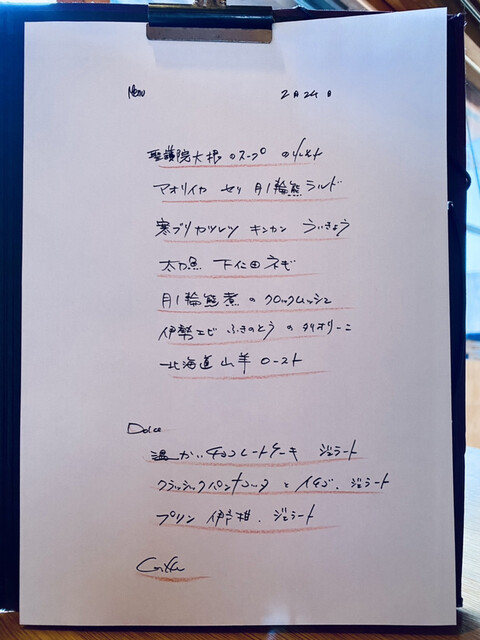 Menu 2月24日
聖護院大根のスープ のリゾット
アオリイカ セリ 月ノ輪熊ラルド
寒ブリカツレツ キンカン ういきょう
太刀魚 下仁田ネギ
月ノ輪熊煮のクロックムッシュ
伊勢エビ ふきのとうのタリオリーニ
北海道山羊ロースト
Dolce
温かいチョコレートケーキ ジェラート
クラシックパンナコッタとイチゴ、ジェラート
プリン 伊予柑、ジェラート
Caffe